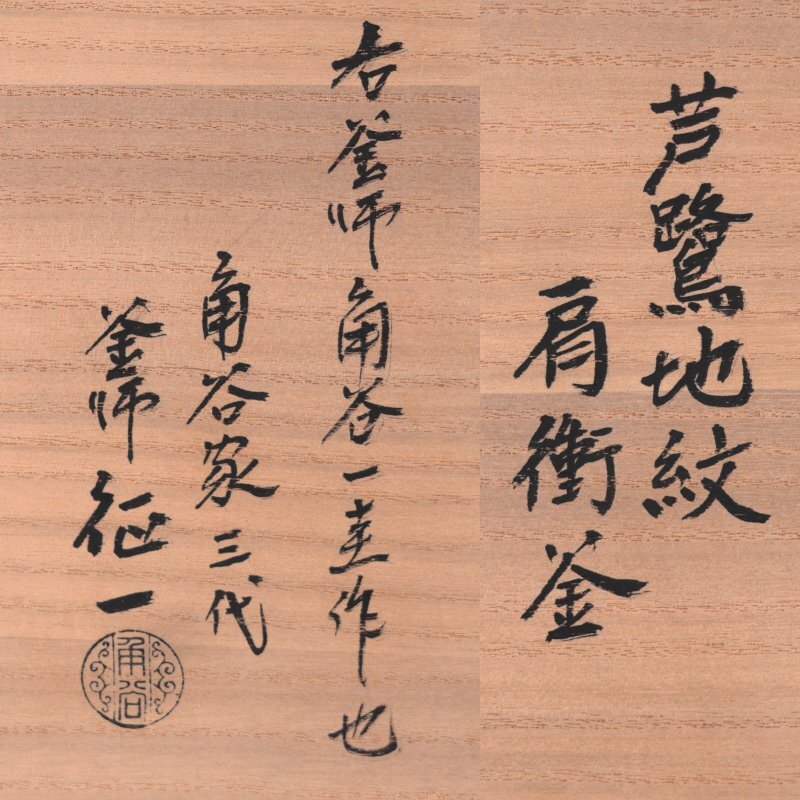 芦鷺地紋
肩衝釜
右釜師角谷一圭作也
角谷家三代
釜師征一
角谷